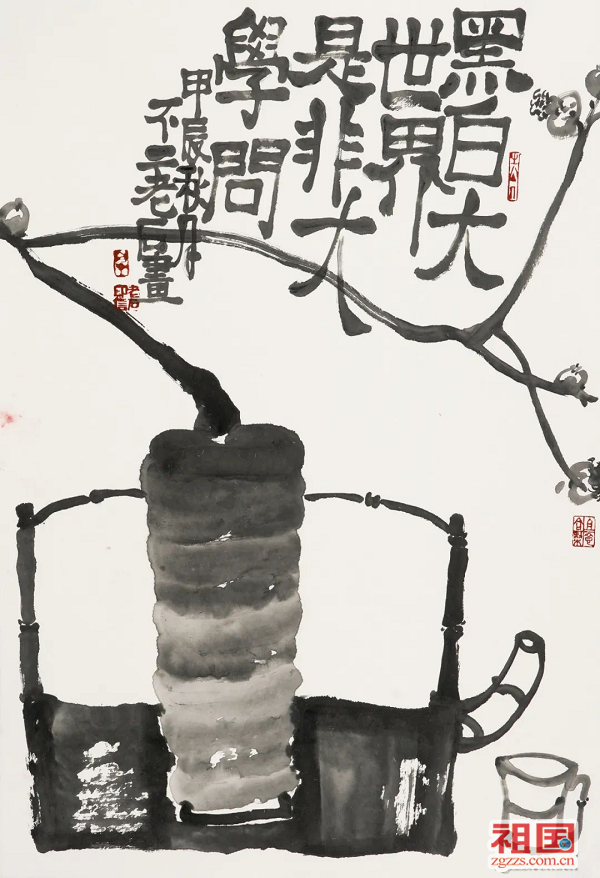 黑白大
世界
是非大
學問
甲辰秋月
不二老石畫
祖国
zgzzs.com.cn